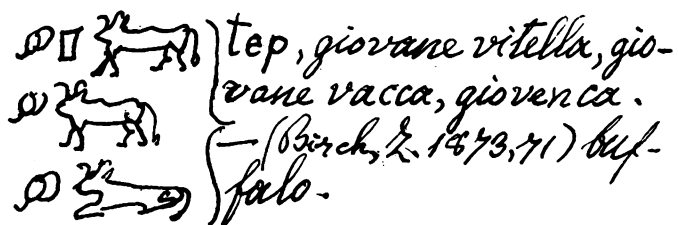 tep, giovane vitella, gio-
vane vacca, giovenca.
— (Birch, Z. 1873, 71) buf-
falo.